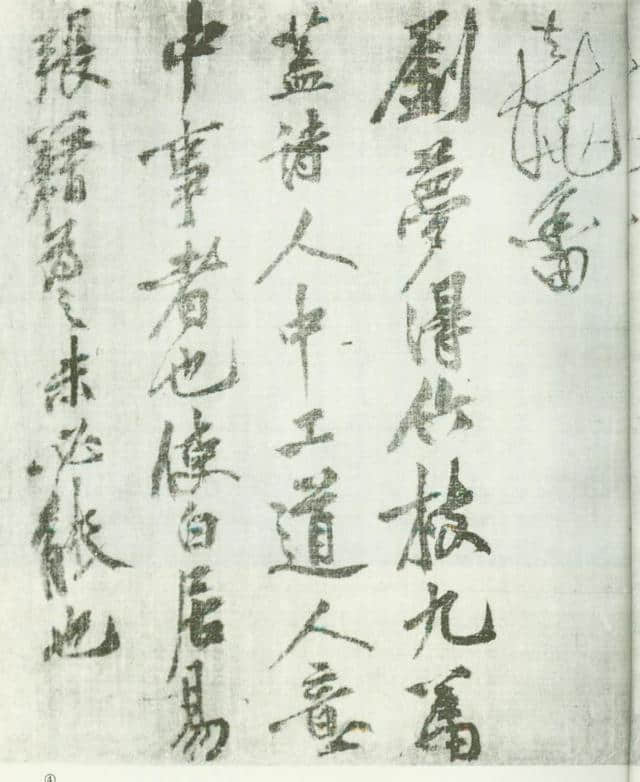 去燒畬
劉夢得竹枝九篇
蓋詩人中工道人意
中事者也使白居易
張籍為之未必能也
④